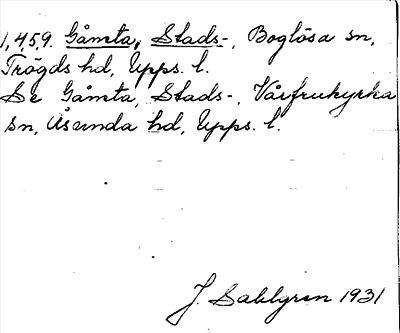 1,459. Gåmta, Stads-, Boglösa sn,
Trögds hd, Upps. l.
Se Gåmta, Stads-, Vårfrukyrka
sn, Åsunda hd, Upps. l.
J. Sahlgren 1931